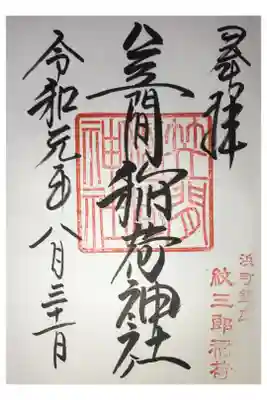 奉拝
浜町鎮座
紋三郎稲荷
笠間稲荷神社
笠間
神社
令和元年八月三十一日